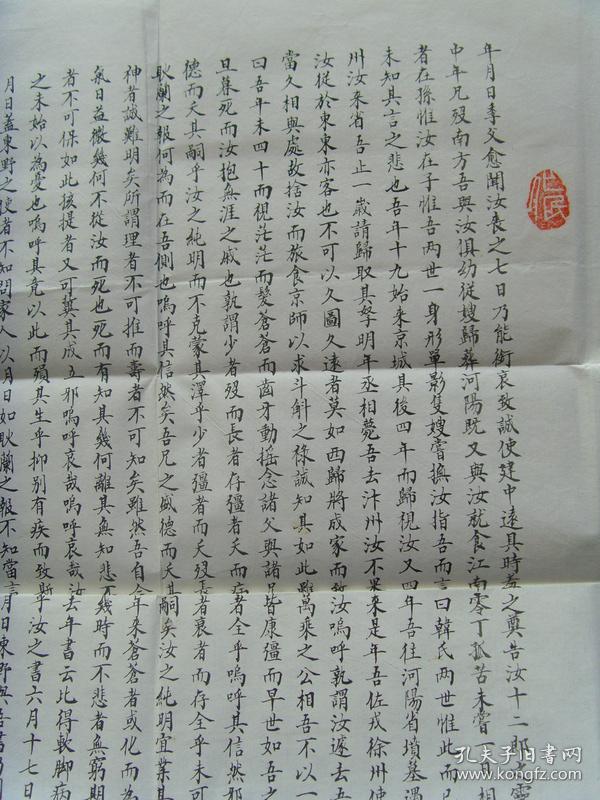 年月日季父愈聞汝喪之七日乃能銜哀致誠使建中遠具時羞之奠告汝十二郎 靈
中年兄歿南方吾與汝俱幼從嫂歸葬河陽既又與汝就食江南零丁孤苦未嘗 相
者在孫惟汝在子惟吾兩世一身形單影隻嫂嘗撫汝指吾而言曰韓氏兩世惟此而已
未知其言之悲也吾年十九始来京城其後四年而歸視汝又四年吾往河陽省墳墓遇
州汝来省吾止一歲請歸取其孥明年丞相薨吾去汴州汝不果来是年吾佐戎徐州使
汝從於東東亦客也不可以久圖久遠者莫如西歸將成家而致汝嗚呼孰謂汝遽去吾
當久相與處故捨汝而旅食京師以求斗斛之祿誠知其如此雖萬乘之公相吾不以一
曰吾年未四十而視茫茫而髮蒼蒼而齒牙動搖念諸父與諸兄皆康彊而早世如吾之
旦暮死而汝抱無涯之戚也孰謂少者歿而長者存彊者夭而病者全乎嗚呼其信然邪
德而夭其嗣乎汝之純明而不克蒙其澤乎少者彊者而夭歿長者衰者而存全乎未可
耿蘭之報何為而在吾側也嗚呼其信然矣吾兄之盛德而夭其嗣矣汝之純明宜業其
神者誠難明矣所謂理者不可推而壽者不可知矣雖然吾自今年来蒼蒼者或化而為
氣日益微幾何不從汝而死也死而有知其幾何離其無知悲不幾時而不悲者無窮期
者不可保如此孩提者又可冀其成立邪嗚呼哀哉嗚呼哀哉汝去年書云比得軟脚病
之未始以為憂也嗚呼其竟以此而殞其生乎抑別有疾而致斯乎汝之書六月十七日
月日蓋東野之使者不知問家人以月日如耿蘭之報不知當言月日東野與吾書乃問
孔夫子旧书网